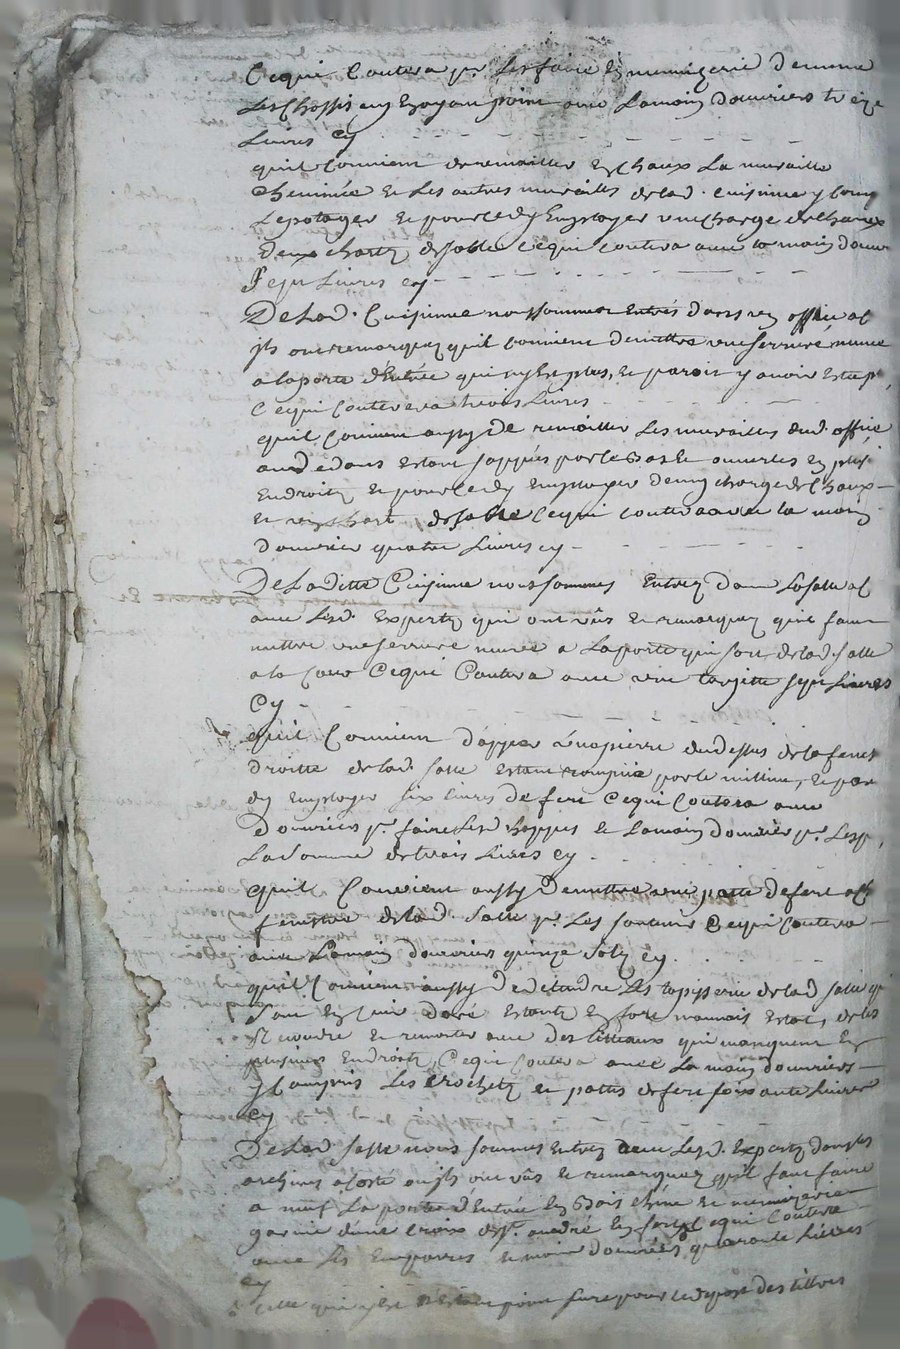 Cequi Coutera pr. Les faire En menuizerie de mesme
Les Chassis ny En ayant point avec Lamain douvriers treize
Livres Cy
quil Convient deremailler En Chaux La muraille
Cheminée et Les autres murailles delad. cuisinne y Comp
Lepotager et pource dy Employer une Charge de Chaux
deux chartz de sable Cequi coutera avec la main douvr
Sept Livres cy
DeLad. Cuisinne nous sommes Entrés dans
ils ont remarquez quil convient demettre une serrure neuve
a laporte d'Entrée qui ny Est plus, et paroit y avoir Esté
Cequi Coutera trois Livres
quil Convient aussy De remailler Les murailles dud. office
audedans Estant sappées par le bas Et ouvertes En plus.
Endroitz et pource dy Employer demy charge de Chaux
et un chart de sable Cequi coutera avec la main
douvrier quatre Livres cy
De Laditte Cuisinne nous sommes Entrez dans Lasalle
avec Lesd. Expertz qui ont vûs et remarquez quil faut
mettre une serrure neuve a Laporte qui sort delad. salle
a la Cour Cequi Coutera avec une targette sept Livres
Cy
quil Convient d'apper Unepierre audessus de la fenet
droitte delad. salle Estant rompüe par le millieu, et pour
dy Employer six livres de fert Cequi Coutera avec
Douvriers pr. faire Lesd. happes et Lamain douvrier pr. Les
La Somme detrois Livres cy
quil Convient aussy Demettre une patte defert
fenestre delad. Salle pr. Les soutenir Cequi Coutera
avec Lamain douvriers quinze Solz cy
quil Convient aussy De détendre Les tapisserie delad salle
Sont En Cuir doré Estantz En fort mauvais Estat, de les
Recoudre et remonter avec des litteaux qui manquent En
plusieurs Endroitz, Cequi Coutera avec La main douvriers
y Compris Les Crochetz et pattes defert soixante Livres
Cy
De Lad Salle nous sommes Entrez avec Lesd. Expertz dans les
archives a Costé ou ils ont vûs et remarquez qu'il faut faire
a neuf La porte d'Entrée En bois chêne et menuizerie
garnie d'une Croix de St. andré En fort Cequi Coutera
avec Les Emparres et main douvriers quarante Livres
cy
Celle qui y Est n'estant point sure pour ledepost des tittres